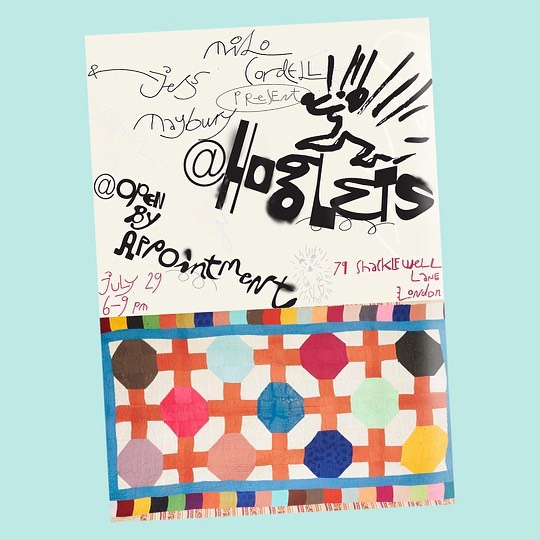 Milo
Cordell
& Jess
Present
Maybury
@Hoglets
@Open
By
Appointment
July 29
6-9 pm
79 Shacklewell
Lane
London